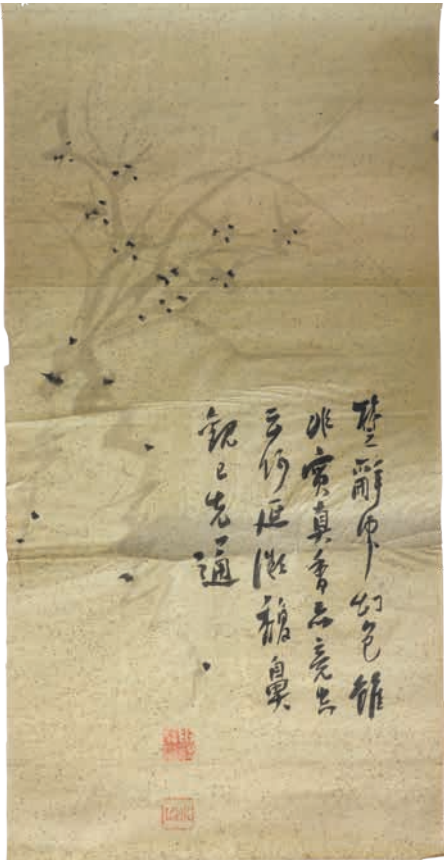 辭幻色雖
非實真香亦竟空
云何微馥鼻
觀已先通